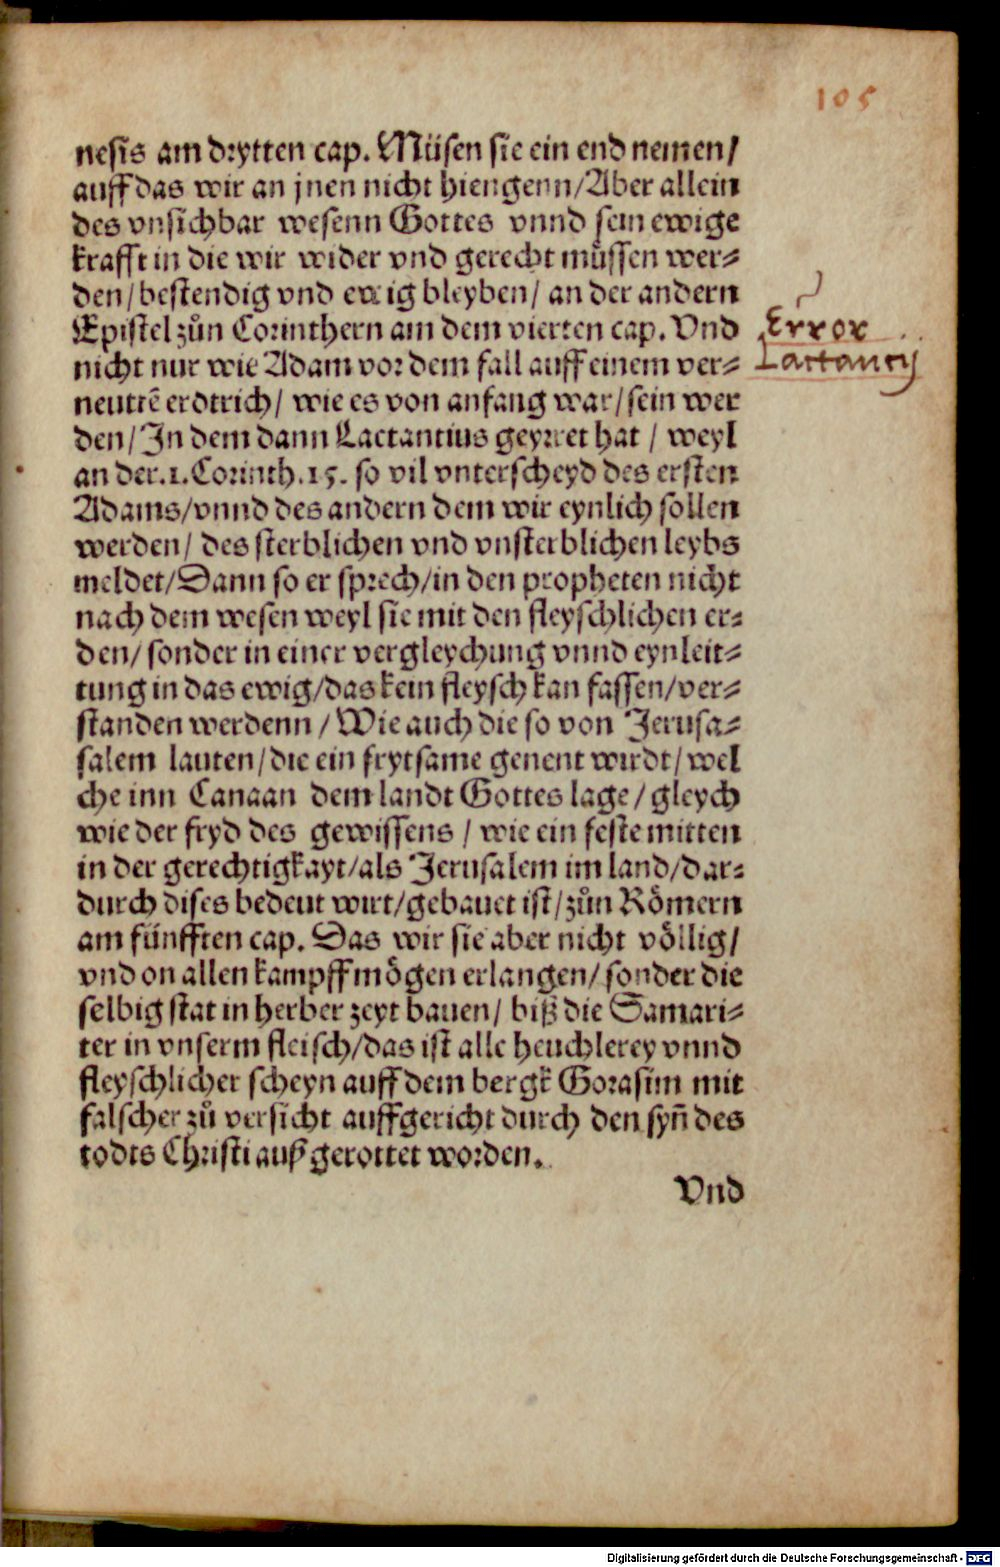 105
nesis am drytten cap. Müsen sie ein end nemen/
auff das wir an jnen nicht hiengenn/Aber allein
des vnsichbar wesenn Gottes vnnd sein ewige
krafft in die wir wider vnd gerecht müssen wer⸗
den/bestendig vnd ewig bleyben/ an der andern
Epistel zůn Corinthern am dem vierten cap. Vnd
Error
nicht nur wie Adam vor dem fall auff einem ver⸗
Lactancij
neuttē erdtrich/ wie es von anfang war/sein wer
den/In dem dann Lactantius geyrret hat / weyl
an der.1.Corinth.15. so vil vnterscheyd des ersten
Adams/vnnd des andern dem wir eynlich sollen
werden/ des sterblichen vnd vnsterblichen leybs
meldet/Dann so er sprech/in den propheten nicht
nach dem wesen weyl sie mit den fleyschlichen er⸗
den/sonder in einer vergleychung vnnd eynleit⸗
tung in das ewig/das kein fleysch kan fassen/ver⸗
standen werdenn/Wie auch die so von Jerusa⸗
salem lauten/die ein frytsame genent wirdt/wel
che inn Canaan dem landt Gottes lage/gleych
wie der fryd des gewissens / wie ein feste mitten
in der gerechtigkayt/als Jerusalem im land/dar⸗
durch dises bedeut wirt/gebauet ist/zůn Römern
am fünfften cap. Das wir sie aber nicht völlig/
vnd on allen kampff mögen erlangen/sonder die
selbig stat in herber zeyt bauen/ biß die Samari⸗
ter in vnserm fleisch/das ist alle heuchlerey vnnd
fleyschlicher scheyn auff dem bergk Gorasim mit
falscher zů versicht auffgericht durch den syn̄ des
todts Christi auß gerottet worden.
Vnd
Digitalisierung gefördert durch die Deutsche Forschungsgemeinschaft - DFG